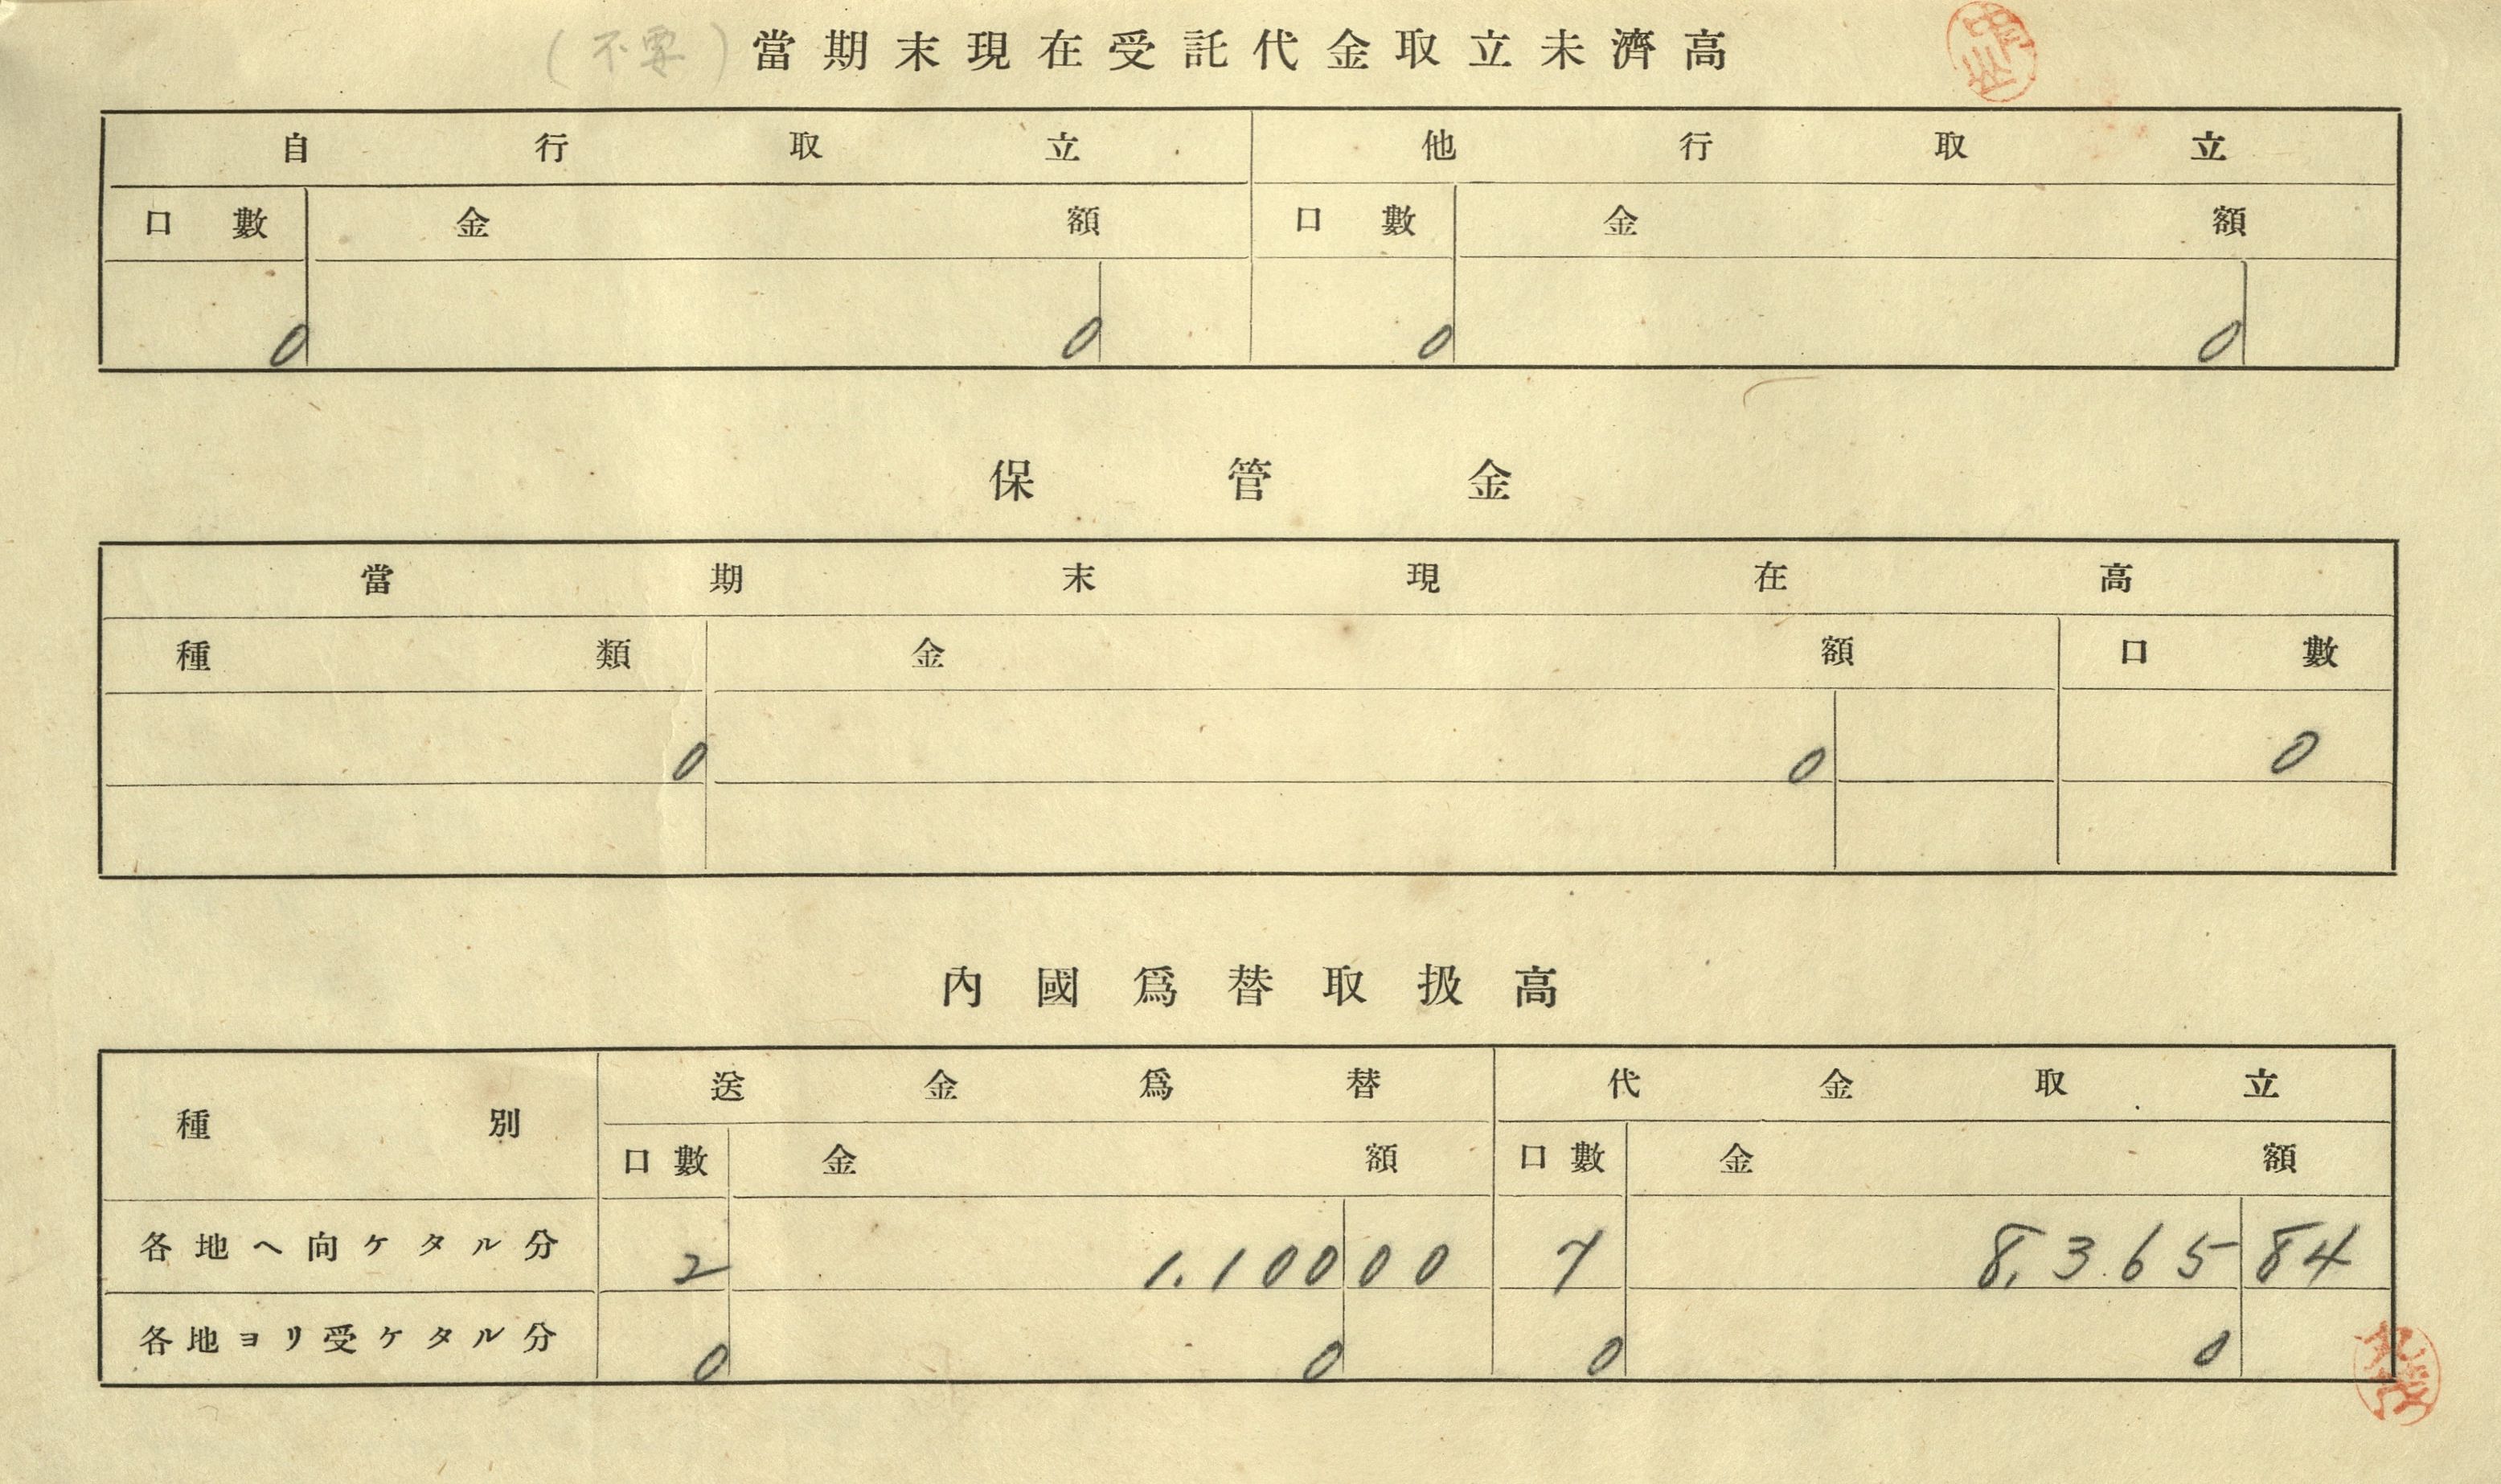 (不要) 當期末現在受託代金取立未濟高
自行取立 他行取立
口數 金額 口數 金額
0 0 0 0
保管金
當期末現在高
種類 金額 口數
0 0 0
內國爲替取扱高
種別 送金爲替 代金取立
口數 金額 口數 金額
各地へ向ケタル分 2 1.100 00 7 8,365 84
各地ヨリ受ケタル分 0 0 0 0